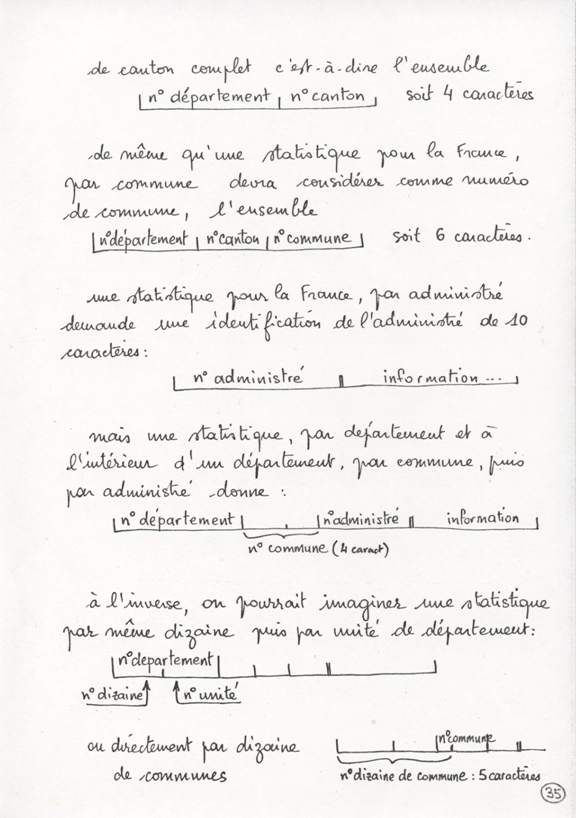 de canton complet c'est-à-dire l'ensemble
n° département n° canton soit 4 caractères
de même qu'une statistique pour la France,
par commune devra considérer comme numéro
de commune, l'ensemble
n° département n° canton n° commune soit 6 caractères.
une statistique pour la France, par administré
demande une identification de l'administré de 10
caractères :
n° administré information ...
mais une statistique, par département et à
l'intérieur d'un département, par commune, puis
par administré donne :
n° département n° administré information
n° commune (4 caract)
à l'inverse, on pourrait imaginer une statistique
par même dizaine puis par unité de département :
n° departement
n° dizaine n° unité
ou directement par dizaine
de communes
n° commune
n° dizaine de commune : 5 caractères
35